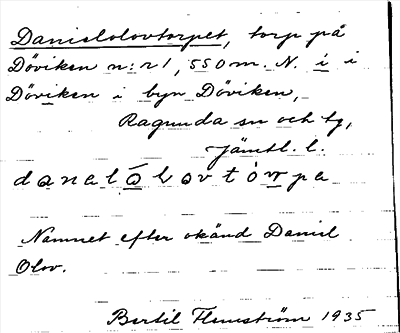 Danielolovtorpet, torp på
Döviken n:r 1, 550 m. N. i i
Döviken i byn Döviken,
Ragunda sn och tg,
Jämtl. l.
danalōlovtòrpa
Namnet efter okänd Daniel
Olov.
Bertil Flemström 1935